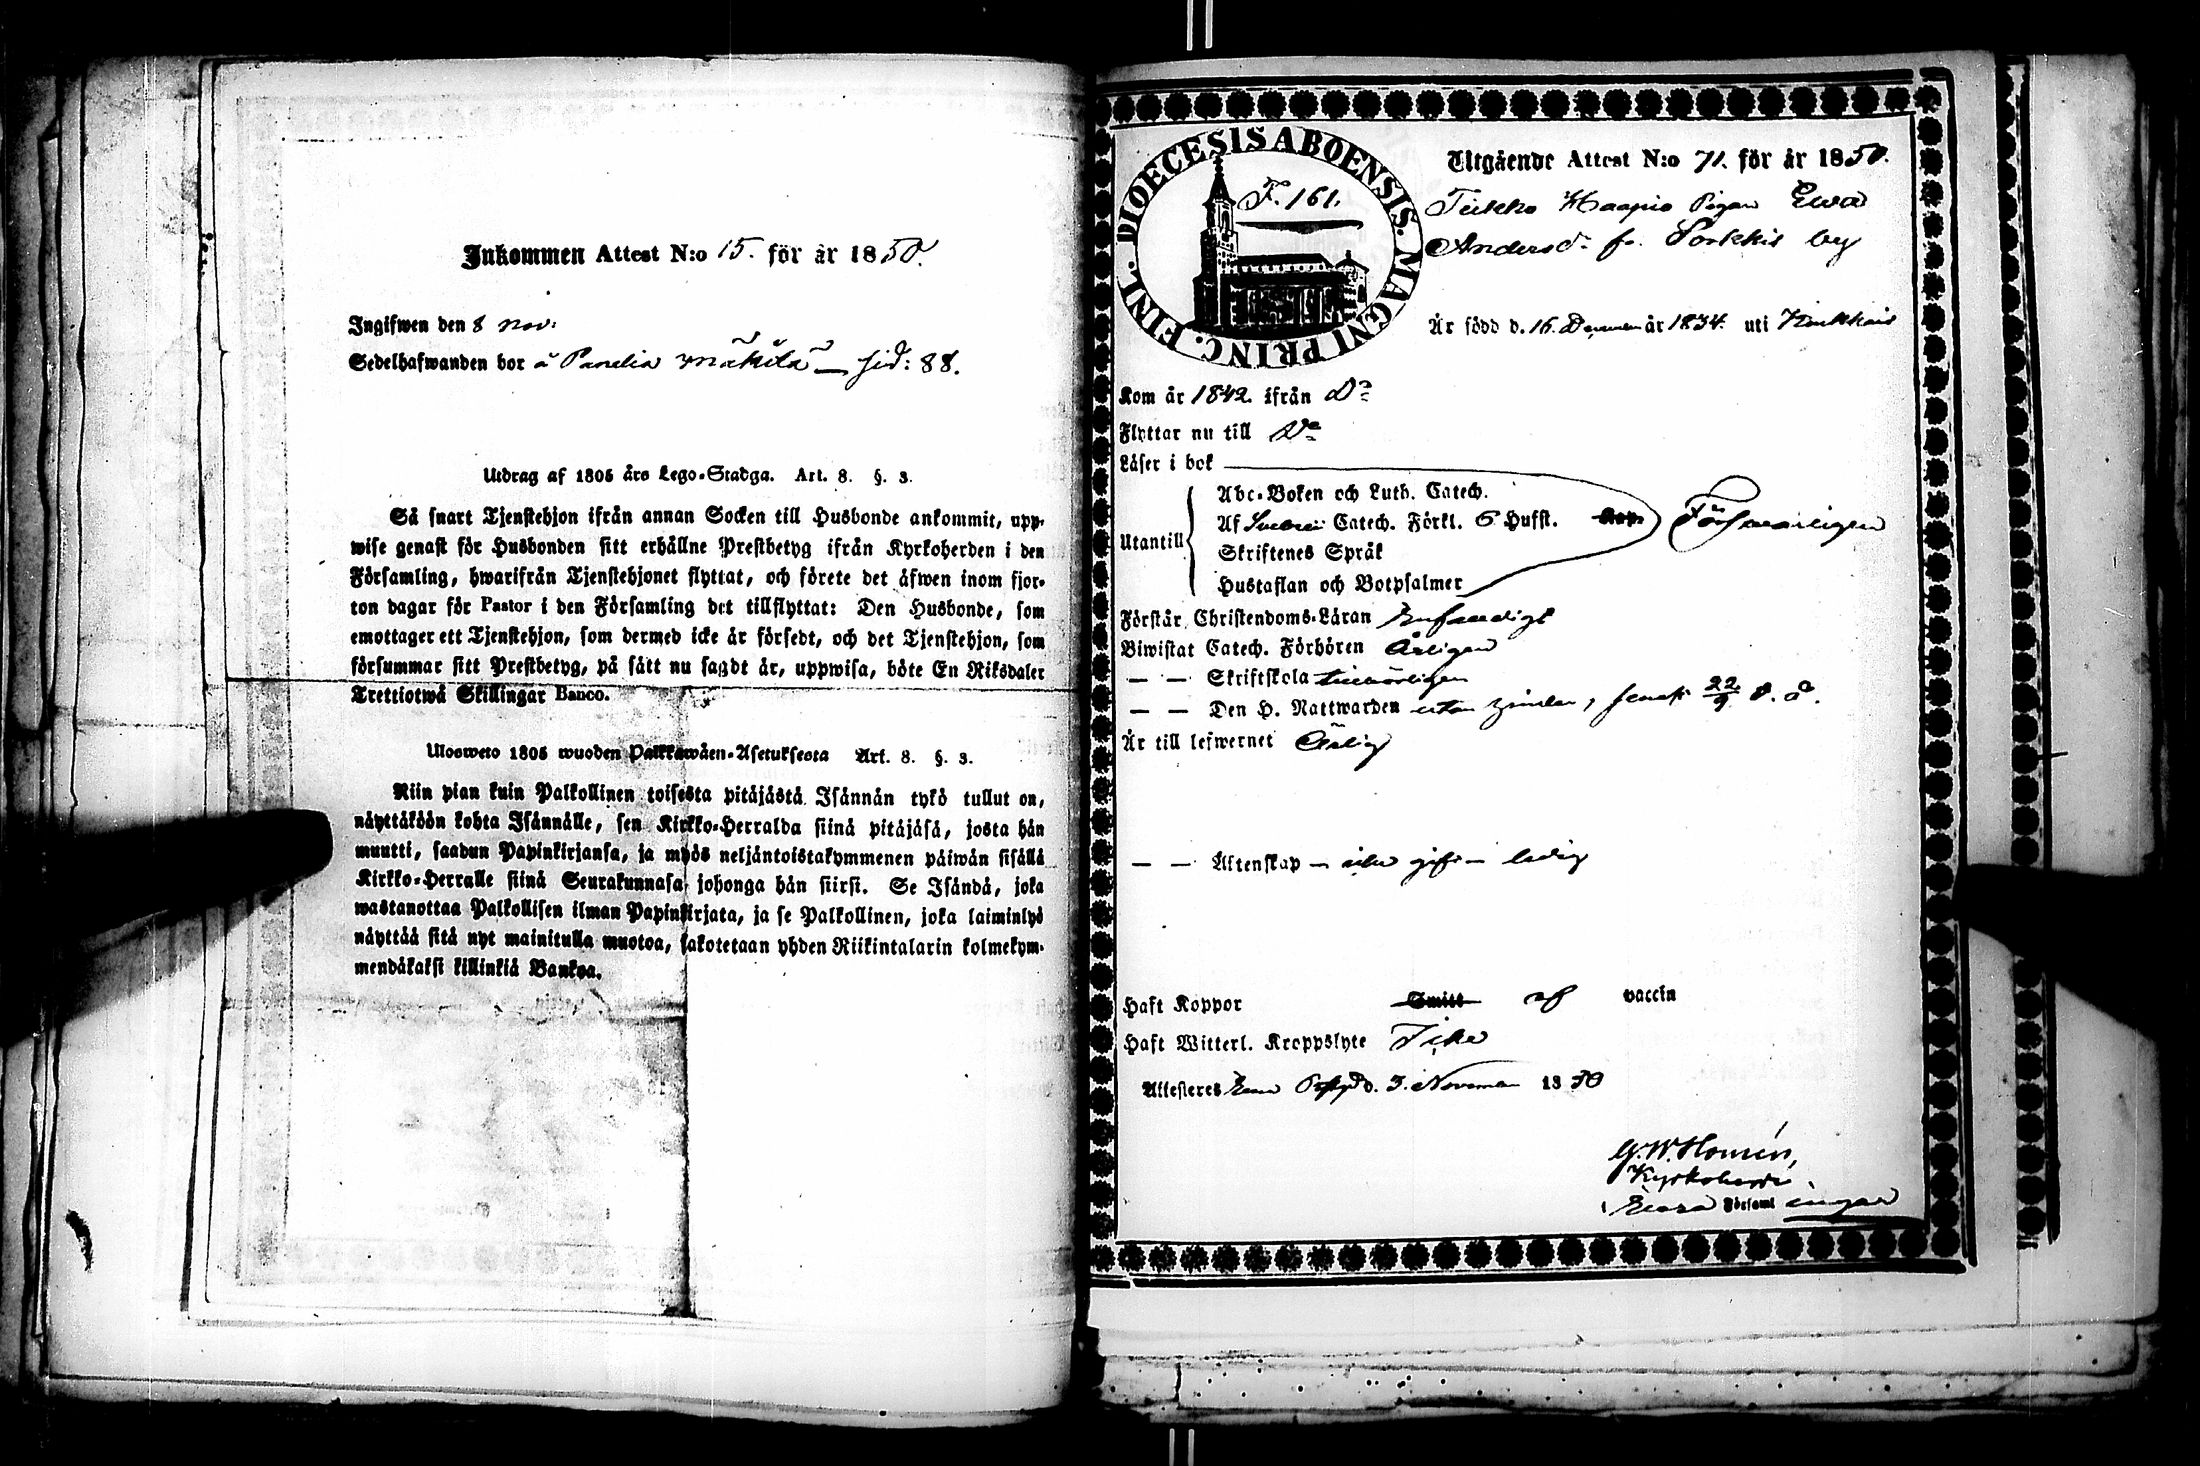 Inkommen Attest N:o 15. för år 1850.
Ingifwen den 8 Nov:
Sedelhafwanden bor å Panelia Mäkilä — sid: 88.
Utdrag af 1805 års Lego-Stadga. Art. 8. §. 3.
Så snart Tjenstehjon ifrån annan Socken till Husbonde ankommit, upp-
wise genast för Husbonden sitt erhållne Prestbetyg ifrån Kyrkoherden i den
Församling, hwarifrån Tjenstehjonet flyttat, och förete det äfwen inom fjor-
ton dagar för Pastor i den Församling det tillflyttat: Den Husbonde, som
emottager ett Tjenstehjon, som dermed icke är försedt, och det Tjenstehjon, som
försummar sitt Prestbetyg, på sätt nu sagdt är, uppwisa, böte En Riksdaler
Trettiotwå Skillingar Banco.
Ulosweto 1805 wuoden Palkkawäen-Asetuksesta Art. 8. §. 3.
Niin pian kuin Palkollinen toisesta pitäjästä Isännän tykö tullut on,
näyttäköön kohta Isännälle, sen Kirkko-Herralda siinä pitäjäsä, josta hän
muutti, saadun Papinkirjansa, ja myös neljäntoistakymmenen päiwän sisällä
Kirkko-Herralle siinä Seurakunnasa johonga hän siirsi. Se Isändä, joka
wastanottaa Palkollisen ilman Papinkirjata, ja se Palkollinen, joka laiminlyö
näyttää sitä nyt mainitulla muotoa, sakotetaan yhden Riikintalarin kolmekym-
mendäkaksi killinkiä Bankoa.
DIOECESIS ABOENSIS. MAGNI PRINC. FINL.
F. 161.
Utgående Attest N:o 71. för år 1850.
Haapio Pigan Ewa
Andersd:r fr. Sorkkis by
Är född d. 16. December år 1834. uti
Kom år 1842. ifrån D:o
Flyttar nu till
Läser i bok
Utantill
Abc-Boken och Luth. Catech.
Af Svebelii Catech. Förkl. 6 Hufst. Kap.
Skriftenes Språk
Hustaflan och Botpsalmer
Försvarligen
Förstår Christendoms-Läran Enfaldigt
Biwistat Catech. Förhören Årligen
— — Skriftskola tillbörligen
— — Den H. Nattwarden utan hinder, senast 22/9 d. å.
Är till lefwernet Ärlig
— — Äktenskap — icke gift — ledig
Haft Koppor Smitt af vaccin
Haft Witterl. Kroppslyte Icke
Attesteres Eura d. 3. November 1850
G. W. Homén,
Kyrkoherde
i Eura Församlingar